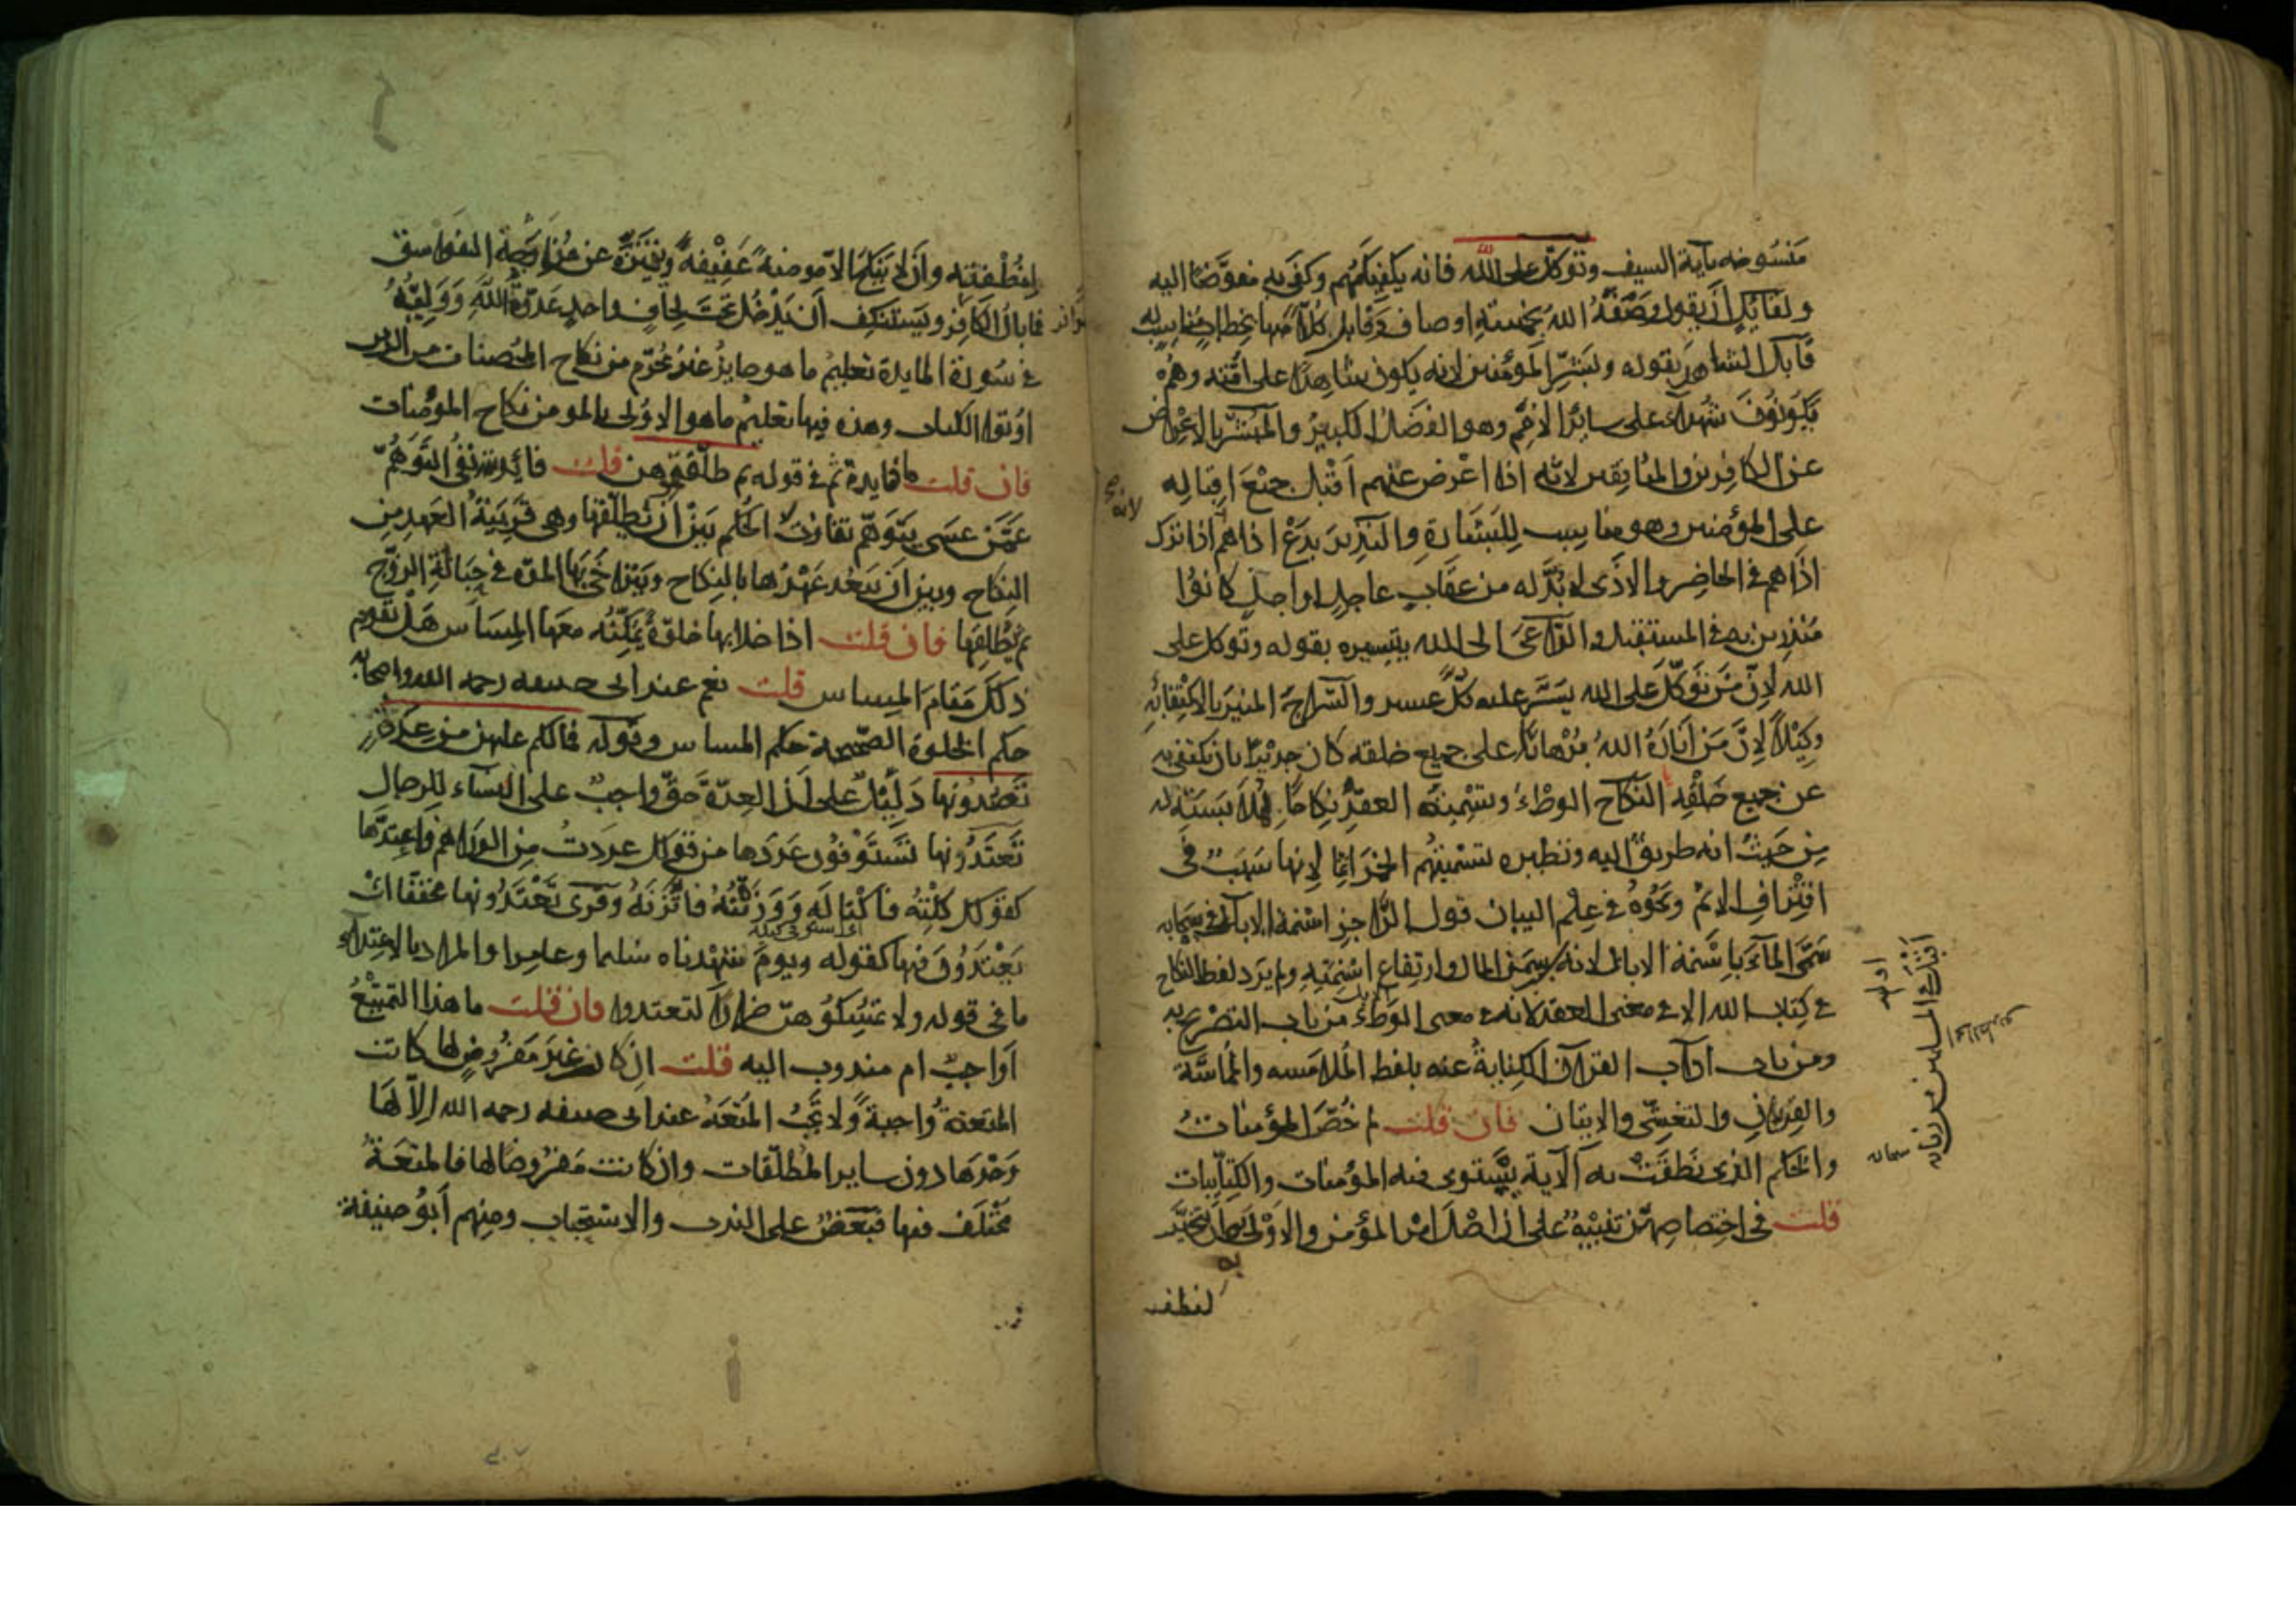 مَنْسُوخه بآية السيف وتوكّل على الله فانه يكفيكهم وكفى به مفوَّضًا اليه
ولقائل أن يقول وصَفَهُ اللهُ بخمسة اوصاف وقابل كُلًّا منها بخطاب مناسب له
قابل الشاهد بقوله وبشّر المؤمنين لانه يكون شاهدًا على امّته وهم
يكونون شهداء على سائر الامم وهو الفضل الكبير والمبشّر بالاعراض
عن الكافرين والمنافقين لانّه اذا اعرض عنهم اقبل جميع اقباله
على المؤمنين وهو مناسب للبشارة والنذير بدع اذاهم لانه اذا ترك
اذاهم فى الحاضر والاذى لا بُدّ له من عقاب عاجل او اجل كانوا
منذرين به فى المستقبل والداعىَ الى الله بتيسيره بقوله وتوكل على
الله لانّ من توكّل على الله يسّر عليه كلّ عسير والسّراجَ المنير بالاكتفاء به
وكيلًا لانّ من أناره اللهُ برهانًا على جميع خلقه كان جديرًا بان يكتفى به
عن جميع خلقه النكاح الوطءُ وتسمية العقد نكاحًا لملابسته له
مِن حيثُ انه طريق اليه ونظيره تسميتهم الخمر اثمًا لانها سَبَبٌ فى
اقتراف الاثم ونحوُهُ فى علم البيان قول الرّاجز اسنمة الابال فى سحابه
سَمّى الماءَ باسنمة الابال لانه سبب سمن المال وارتفاع اسنمته ولم يرد لفظ النكاح
فى كتاب الله الا فى معنى العقد لانه فى معنى الوطء من باب التصريح به
ومن باب اداب القرآن الكنايةُ عنه بلفظ الملامسه والمماسّة
والقربان والتغشّى والاتيان فان قلت لم خُصّ المؤمناتُ
والحكم الذى نطقت به الآية يستوى فيه المؤمنات والكتابيات
قلت فى اختصاصهنّ تنبيهٌ على أن اصْلَ امر المؤمن والاوْلى به أن يتخيّر
لنطفته
لنطفته وان لا ينكح الا مومنةً عَفيفةً ويتنزّه عن مُزاوَجة الفواسق
فما بالُ الكافر ويستنكف أن يدخُل تحت لحافٍ واحدٍ عدوّةُ اللهِ ووليّهُ
فى سُورة المايدة تعليمُ ما هو جايزٌ غيرُ محرّم من نكاح المُحصنات من الذين
اُوتوا الكتاب وهذه فيها تعليم ما هو الاولى بالمومن من نكاح المؤمنات
فان قلت ما فايدة ثمّ فى قوله ثم طلّقتموهن قلت فائدته نفىُ التوهّم
عمّن عسى يتوهّم تفاوت الحكم بين أن يطلّقها وهى قريبةُ العهد من
النكاح وبين أن يبعُد عهدُها بالنكاح ويتراخى بها المدّة فى حبالة الزوج
ثم يُطلّقها فان قلت اذا خلا بها خلوةً يُمكنُه معها المساس هل تقوم
ذلك مقام المساس قلت نعم عند ابى حنيفه رحمه الله واصحابه
حكم الخلوة الصحيحة حكم المساس وقوله فمالكم عليهن من عِدّةٍ
تعتدّونها دليلٌ على أنّ العدّة حقّ واجبٌ على النساء للرجال
تعتدّونها تستوفون عددها من قولك عددت من الدراهم فاعتدّها
كقولك كلتُه فاكتاله ووزنتُه فاتّزنه وقرئ تَعْتدُونها مخففًا اى
يعتدُون فيها كقوله ويومٌ شهدناه سليما وعامرا والمراد بالاعتداء
ما فى قوله ولا تمسكوهنّ ضرارًا لتعتدوا فان قلت ما هذا التمتيعُ
اَواجبٌ ام مندوب اليه قلت ان كان غير مفروضٍ لها كانت
المتعةُ واجبةً ولا تجبُ المتعة عند ابى حنيفه رحمه الله الّا لها
وحدها دون ساير المطلّقات وان كانت مفروضًا لها فالمتعةُ
مختلَف فيها فبعضٌ على الندب والاستحباب ومنهم أبو حنيفة